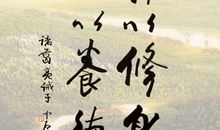 以修身
以養德
诸葛亮诫子